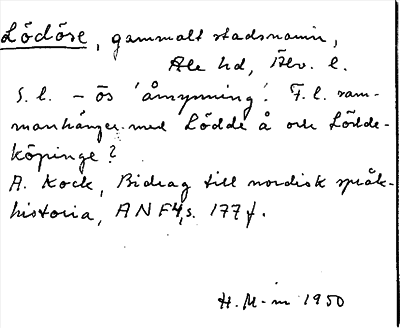 Lödöse, gammalt stadsnamn,
Ale hd, Älv. l.
S. l. - ös 'åmynning'. F. l. sam-
manhänger med Lödde å och Lödde-
köpinge?
A. Kock, Bidrag till nordisk språk-
historia, ANF 4, s. 177 f.
H. M-m 1950